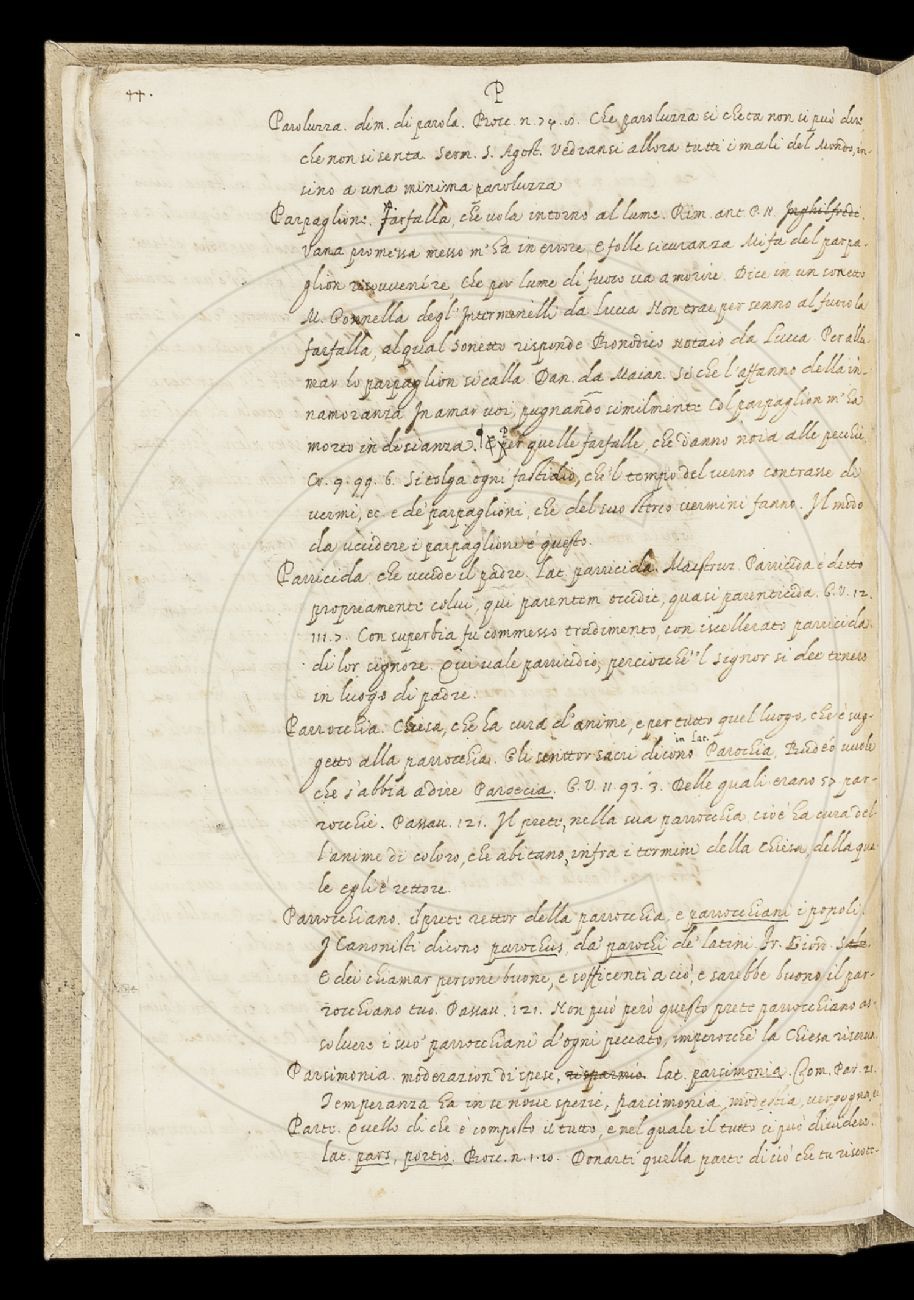 44.
P
Paroluzza. dim. di parola. Bocc. n. 74. 10. Che paroluzza si cheta non si può dire
che non si senta. Serm. S. Agost. Vedransi allora tutti i mali del Mondo, in-
sino a una minima paroluzza
Parpaglione. Farfalla, che vola intorno al lume. Rim. ant. P. N. Inghilfredi.
Vana promessa messo m'ha in errore, E folle sicuranza Mi fa del parpa-
glion risovvenire, Che per lume di fuoco va a morire. Dice in un sonetto
M. Gonnella degl'Interminelli da Lucca Non trae per senno al fuoco la
farfalla, al qual Sonetto risponde Bonodico notaio da Lucca Per alla
mar lo parpaglion si calla. Dan. da Maian. Si che l'affanno della in-
namoranza In amar voi, pugnando similmente Col parpaglion m'ha
morto in disianza. E per quelle farfalle, che danno noia alle pecchie,
Cr. 9. 99. 6. Si tolga ogni fastidio, che 'l tempo del verno contrasse di
vermi, ec. e de' parpaglioni, che del suo sterco vermini fanno. Il modo
da uccidere i parpaglioni è questo.
Parricida, che uccide il padre. Lat. parricida. Maestruz. Parricida è detto
propriamente colui, qui parentem occidit, quasi parenticida. G. V. 12.
111. 7. Con superbia fu commesso tradimento, con iscellerato parricida
di lor signore. Qui vale parricidio, perciocche 'l signor si dee tenere
in luogo di padre.
Parrocchia. Chiesa, che ha cura d'anime, e per tutto quel luogo, che è sug-
getto alla parrocchia. Gli scrittor sacri dicono in lat. Parochia, Budeo vuole
che s'abbia a dire Paroecia. G. V. 11. 93. 3. Delle quali erano 57 par-
rocchie. Passav. 121. Il prete, nella sua parrocchia cioè ha cura del-
l'anime di coloro, che abitano, infra i termini della Chiesa, della qua-
le egli è rettore.
Parrocchiano. il prete rettor della parrocchia, e parrocchiani i popoli.
I Canonisti dicono parochus, da parochi de' latini. Fr. Giord.
E dei chiamar persone buone, e sofficenti a ciò, e sarebbe buono il par-
rocchiano tuo. Passav. 121. Non può però questo prete parrocchiano as-
solvere i suo' parrocchiani d'ogni peccato, imperocchè la Chiesa riserva
Parsimonia. moderazion di spese, risparmio. lat. parcimonia. Com. Par. 21.
Temperanza ha in se nove spezie, parcimonia, modestia, vergogna, ec
Parte. Quello di che è composto il tutto, e nel quale il tutto si può dividere.
Lat. pars, portio. Bocc. n. 1. 10. Donarti quella parte di ciò che tu riscote-